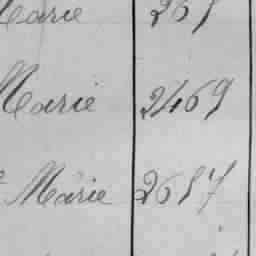 Marie 2657
Marie 2469
Marie 2657